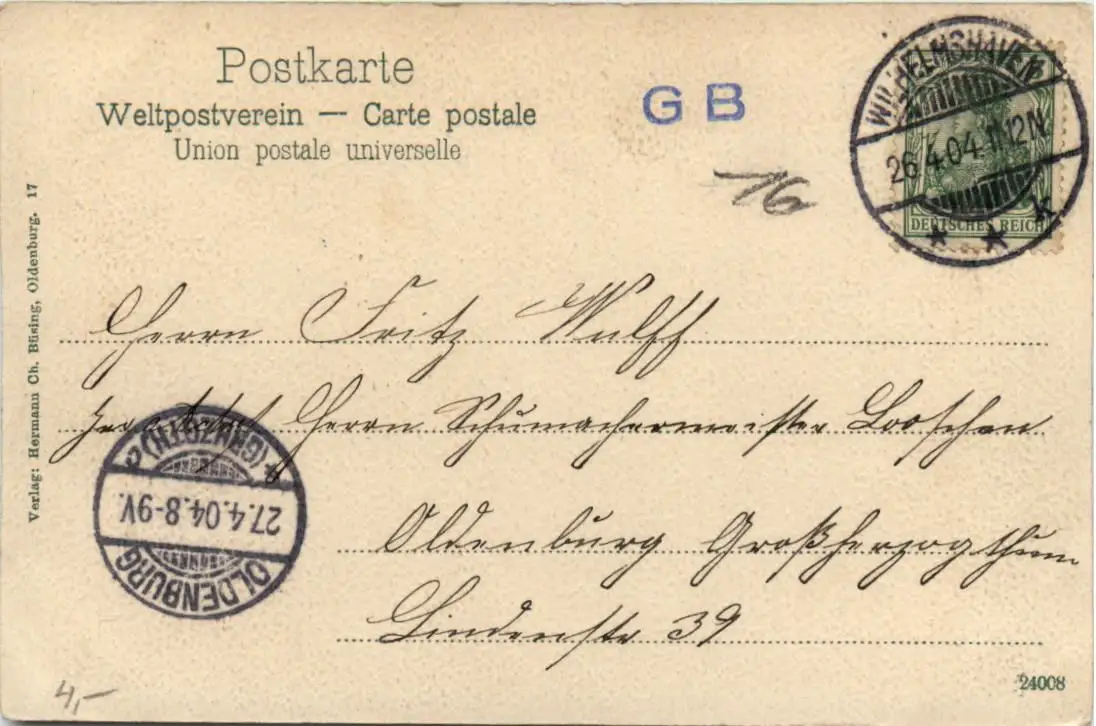 Postkarte
Weltpostverein — Carte postale
Union postale universelle
G B
16
WILHELMSHAVEN
26.4.04.11-12N.
DEUTSCHES REICH
Verlag: Hermann Ch. Büsing, Oldenburg. 17
Herrn Fritz Wulff
Herrn Schumachermeister Looschen
Oldenburg Großherzogthum
Lindenstr 39
*(GRHZGTH)2
27.4.04.8-9V.
OLDENBURG
24008
4,-